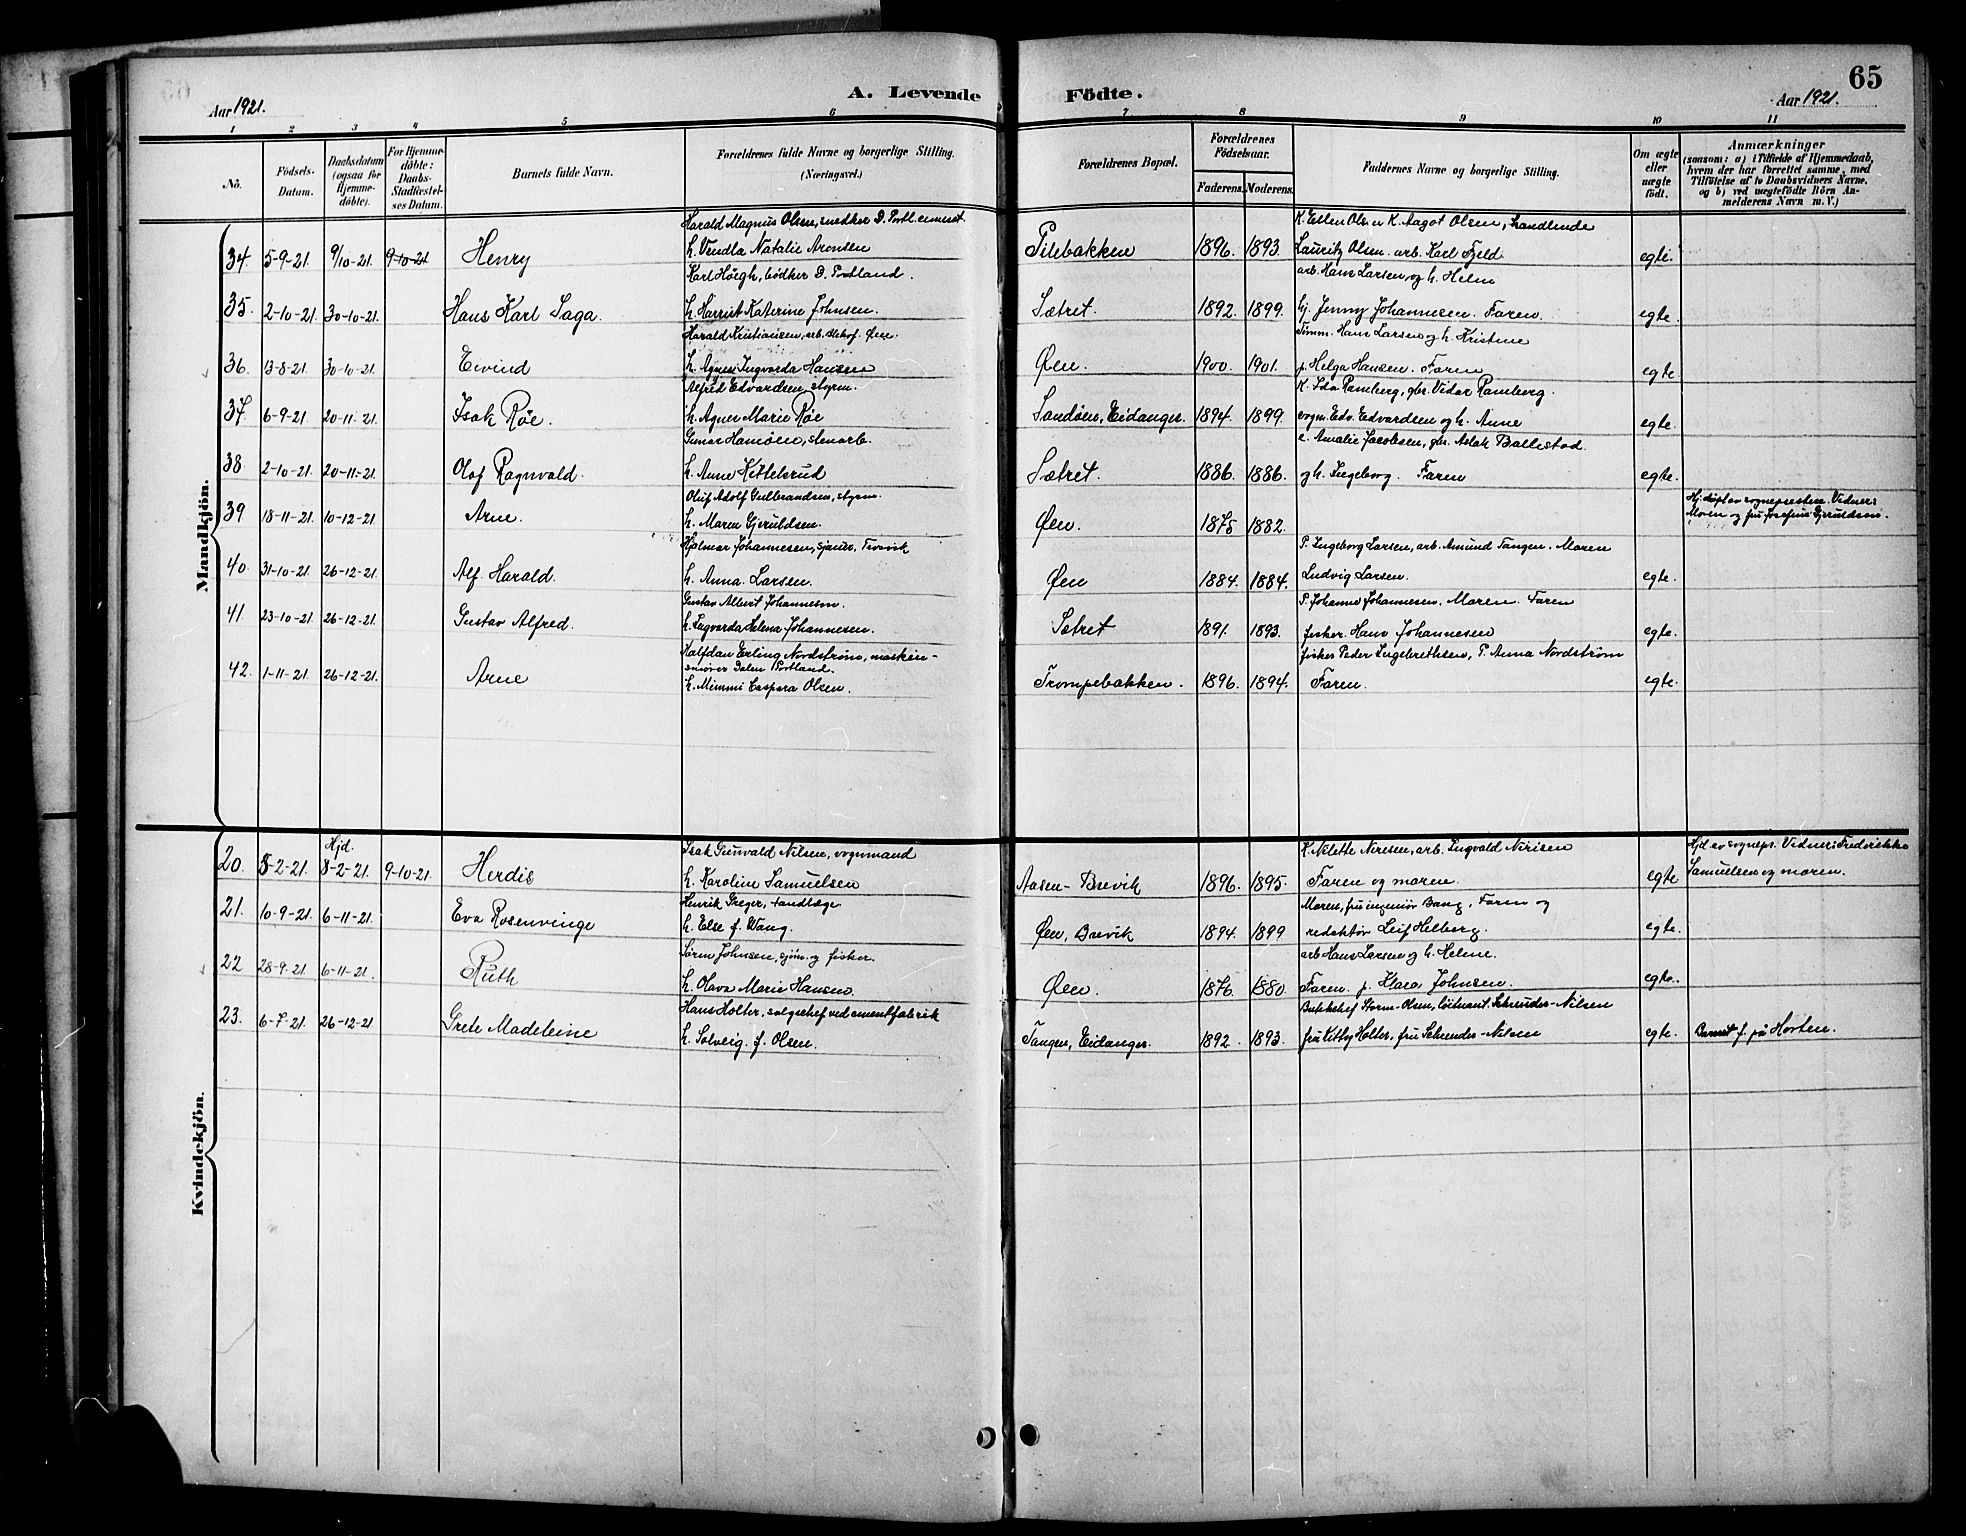 Aar 1921.
A. Levende Födte.
Aar 1921.
65
1 2 3 4 5 6 7 8 9 10 11
No.
Födsels-Datum.
Daabsdatum (ogsaa for Hjemme-döbte).
For Hjemme-döbte: Daabs-Stadfæstel-ses Datum.
Barnets fulde Navn.
Forældrenes fulde Navne og borgerlige Stilling. (Næringsvei.)
Forældrenes Bopæl.
Forældrenes Födselsaar.
Faderens. Moderens.
Faddernes Navne og borgerlige Stilling.
Om ægte eller uægte födt.
Anmærkninger (saasom: a) i Tilfælde af Hjemmedaab, hvem der har forrettet samme, med Tilföielse af to Daabsvidners Navne, og b) ved uægtefödte Börn Anmelderens Navn m. V.)
Mandkjön.
Harald Magnus Olsen, snedker D. Portl. cement. K. Ellen Olsen K. Aagot Olsen, handlende
34. 5-9-21. 9/10-21. 9-10-21 Henry h. Vendla Natalie Aronsen Pilebakken 1896. 1893. Lauritz Olsen. arb. Karl Fjeld egte.
Karl Høegh, bødker D. Portland. arb. Hans Larsen og h. Helene
35. 2-10-21. 30-10-21. Hans Karl Saga. h. Harriet Katerine Johnsen. Sætret. 1892. 1899. hj. Jenny Johannesen. Faren. egte.
Harald Kristiansen, arb. Øen. Tømm. Hans Larsen og h. Kristine
36. 13-8-21. 30-10-21. Eivind h. Agnes Ingvarda Hansen Øen. 1900. 1901. p. Helga Hansen. Faren egte.
Alfred Edvardsen, styrm. K. Ida Ramberg, gbr. Vidar Ramberg.
37. 6-9-21. 20-11-21. Isak Røe. h. Agnes Marie Røe Sandøen, Eidanger. 1894. 1899. vogn. Edv. Edvardsen og h. Anne egte.
Gunar Hansen, stenarb. e. Amalie Jacobsen, gbr. Aslak Ballestad
38 2-10-21. 20-11-21. Olaf Ragnvald. h. Anne Kittelsrud Sætret. 1886. 1886. og h. Ingeborg. Faren egte.
Oluf Adolf Gulbrandsen, styrm. Hj. døpt av sogneprestene. Vidner:
39 18-11-21. 10-12-21. Arne. h. Maren Gjeruldsen. Øen. 1875 1882. Moren og fru Josefine Gjeruldsen.
Hjalmar Johannesen, sjauer, Trosvik P. Ingeborg Larsen, arb. Amund Tangen. Moren
40. 31-10-21. 26-12-21. Alf Harald. h. Anna Larsen. Øen 1884. 1884. Ludvig Larsen. egte.
Gustav Albert Johannesen. P. Johanne Johannesen, Moren. Faren
41. 23-10-21. 26-12-21. Gustav Alfred. h. Ingvarda Helena Johannesen. Sætret 1891. 1893. fisker. Hans Johannesen egte.
Halfdan Erling Nordstrøm, maskin- fisker Peder Ingebrethsen, P. Anna Nordstrøm
smører Dalen Portland.
42. 1-11-21. 26-12-21. Arne h. Mimmi Caspara Olsen. Trompebakken. 1896. 1894. Faren. egte.
Kvindekjön.
Hjd. Isak Gunvald Nilsen, vognmand K. Nilette Nirisen, arb. Ingvald Nirisen Hjd av sognepr. Vidner: Fredrikke
20. 5-2-21. 8-2-21. 9-10-21. Herdis h. Karoline Samuelsen Aasen-Brevik 1896. 1895. Faren og moren. egte Samuelsen og moren.
Henrik Greger, tandlæge Moren, fru ingeniør Bang. Faren og
21. 10-9-21. 6-11-21. Eva Rosenvinge h. Else f. Wang. Øen, Brevik 1894. 1899 redaktør Leif Helberg. egte.
Søren Johnsen, sjøm. og fisker. arb Hans Larsen og h. Helene.
22 28-9-21. 6-11-21. Ruth h. Olava Marie Hansen. Øen. 1876. 1880. Faren. p. Klara Johnsen. egte.
Hans Holter, salgschef ved cementfabrik Butikchef Storm-Olsen, løitnant Schrøuder-Nilsen
23. 6-7-21. 26-12-21. Grete Madeleine h. Solveig. f. Olsen. Tangen, Eidanger. 1892. 1893. fru Kitty Holter, fru Schreuder-Nilsen egte. Barnet f. på Horten.